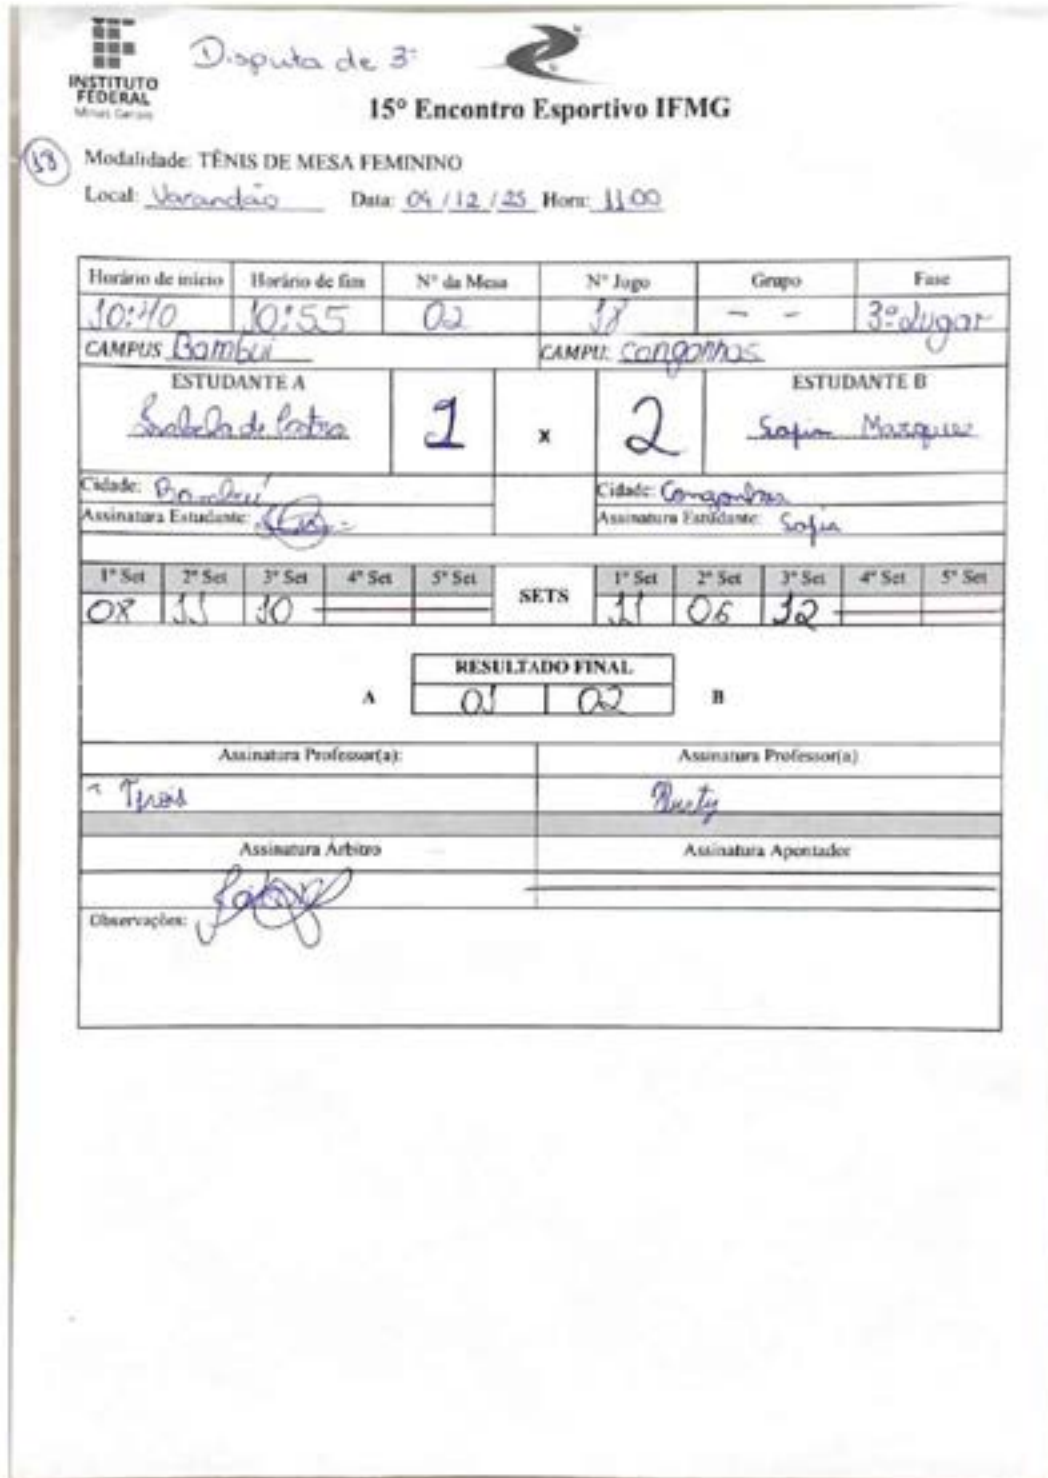 Disputa de 3º
INSTITUTO
FEDERAL
Minas Gerais
15º Encontro Esportivo IFMG
18
Modalidade: TÊNIS DE MESA FEMININO
Local: Varandão Data: 04/12/25 Hora: 11:00
Horário de início Horário de fim Nº da Mesa Nº Jogo Grupo Fase
10:40 10:55 02 18 - - 3º Lugar
CAMPUS Bambuí CAMPU: Congonhas
ESTUDANTE A ESTUDANTE B
Isabela de Castro 1 x 2 Sofia Marques
Cidade: Bambuí Cidade: Congonhas
Assinatura Estudante: Assinatura Estudante: Sofia
1º Set 2º Set 3º Set 4º Set 5º Set SETS 1º Set 2º Set 3º Set 4º Set 5º Set
08 11 10 11 06 12
RESULTADO FINAL
A 01 02 B
Assinatura Professor(a): Assinatura Professor(a)
Assinatura Árbitro Assinatura Apontador
Observações: